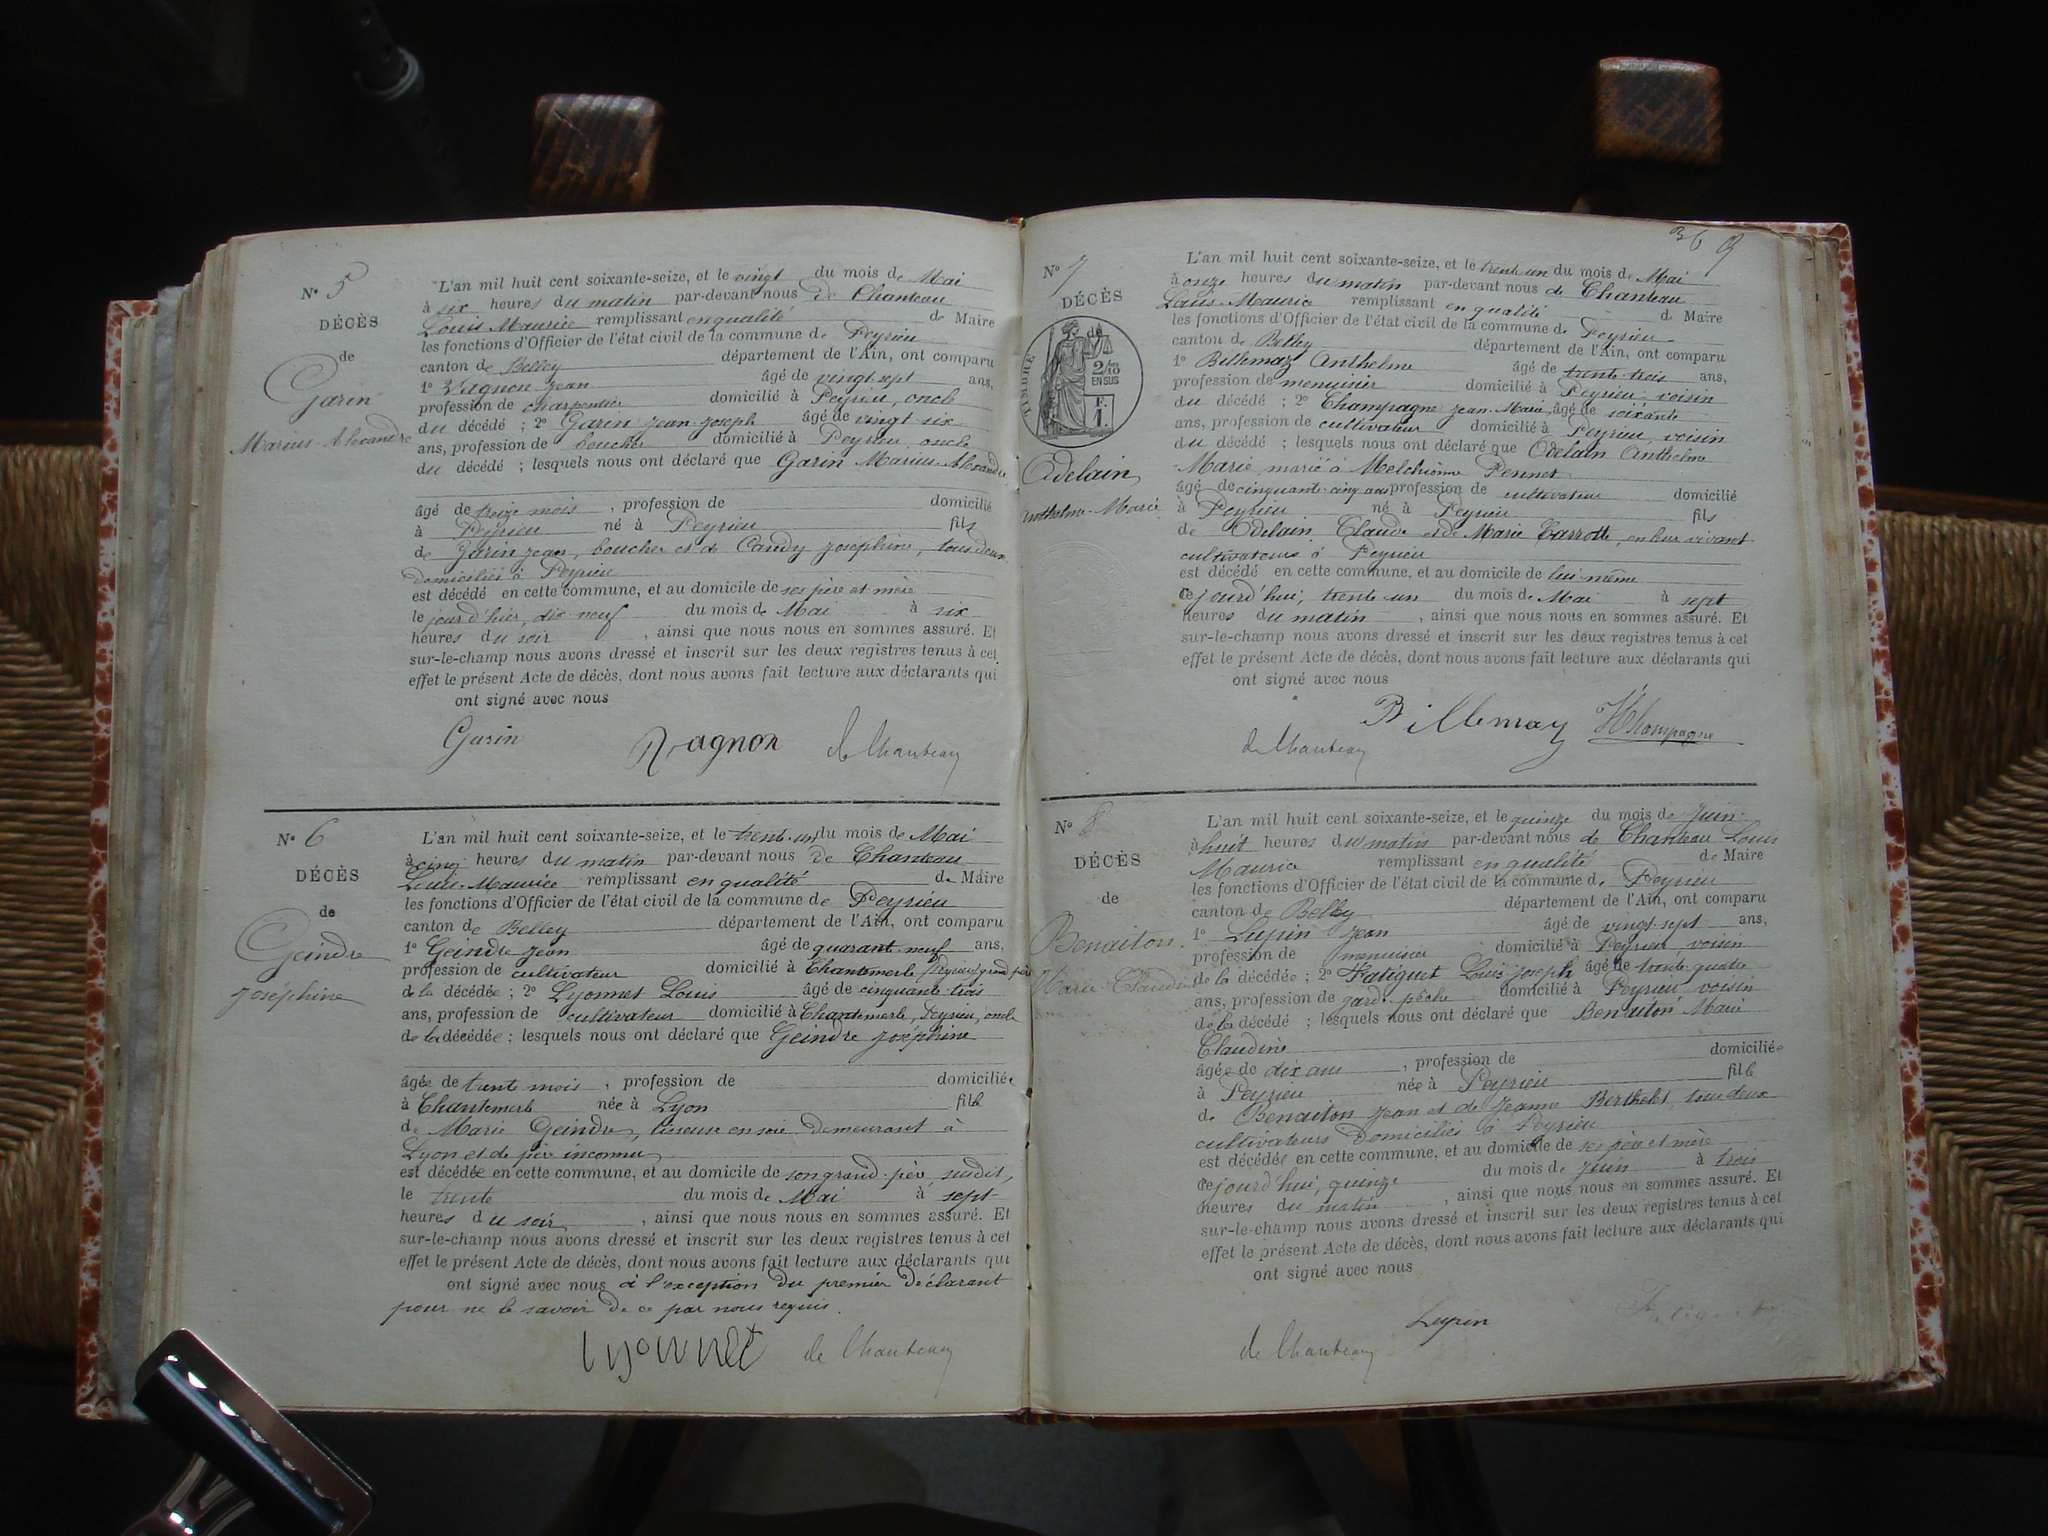 N° 5
DÉCÈS
de
Garin
Marius Alexandre
L'an mil huit cent soixante-seize, et le vingt du mois de Mai
à six heures du matin par-devant nous de Chanteau
Louis Maurice remplissant en qualité de Maire
les fonctions d'Officier de l'état civil de la commune de Peyrieu
canton de Belley département de l'Ain, ont comparu
1° Vagnon Jean âgé de vingt-sept ans,
profession de charpentier domicilié à Peyrieu, oncle
du décédé ; 2° Garin Jean-Joseph âgé de vingt six
ans, profession de boucher domicilié à Peyrieu oncle
du décédé ; lesquels nous ont déclaré que Garin Marius-Alexandre
âgé de treize mois, profession de domicilié
à Peyrieu né à Peyrieu fils
de Garin Jean, boucher et de Candy Joséphine, tous deux
domiciliés à Peyrieu
est décédé en cette commune, et au domicile de ses père et mère
le jour d'hier, dix-neuf du mois de Mai à six
heures du soir, ainsi que nous nous en sommes assuré. Et
sur-le-champ nous avons dressé et inscrit sur les deux registres tenus à cet
effet le présent Acte de décès, dont nous avons fait lecture aux déclarants qui
ont signé avec nous
Garin Vagnon de Chanteau
N° 6
DÉCÈS
de
Geindre
Joséphine
L'an mil huit cent soixante-seize, et le trente-un du mois de Mai
à cinq heures du matin par-devant nous de Chanteau
Louis-Maurice remplissant en qualité de Maire
les fonctions d'Officier de l'état civil de la commune de Peyrieu
canton de Belley département de l'Ain, ont comparu
1° Geindre Jean âgé de quarant-neuf ans,
profession de cultivateur domicilié à Chantemerle Peyrieu grand père
de la décédée ; 2° Lyonnet Louis âgé de cinquante-trois
ans, profession de cultivateur domicilié à Chantemerle, Peyrieu, oncle
de la décédée ; lesquels nous ont déclaré que Geindre Joséphine
âgée de trente mois, profession de domiciliée
à Chantemerle née à Lyon fille
de Marie Geindre, liseuse en soie demeurant à
Lyon et de père inconnu
est décédée en cette commune, et au domicile de son grand-père, susdit,
le trente du mois de Mai à sept
heures du soir, ainsi que nous nous en sommes assuré. Et
sur-le-champ nous avons dressé et inscrit sur les deux registres tenus à cet
effet le présent Acte de décès, dont nous avons fait lecture aux déclarants qui
ont signé avec nous à l'exception du premier déclarant
pour ne le savoir de ce par nous requis.
Lyonnet de Chanteau
36 9
N° 7
DÉCÈS
de
TIMBRE
2/10
EN SUS
F.
1.
Odelain
Anthelme-Marie
L'an mil huit cent soixante-seize, et le trente un du mois de Mai
à onze heures du matin par-devant nous de Chanteau
Louis-Maurice remplissant en qualité de Maire
les fonctions d'Officier de l'état civil de la commune de Peyrieu
canton de Belley département de l'Ain, ont comparu
1° Billemaz Anthelme âgé de trente-trois ans,
profession de menuisier domicilié à Peyrieu voisin
du décédé ; 2° Champagne Jean-Marie, âgé de soixante
ans, profession de cultivateur domicilié à Peyrieu, voisin
du décédé ; lesquels nous ont déclaré que Odelain Anthelme
Marie marié à Melchiôme Pennet
âgé de cinquante-cinq ans profession de cultivateur domicilié
à Peyrieu né à Peyrieu fils
de Odelain Claude et de Marie Carrotte, en leur vivant
cultivateurs à Peyrieu
est décédé en cette commune, et au domicile de lui-même
ce jourd'hui, trente-un du mois de Mai à sept
heures du matin, ainsi que nous nous en sommes assuré. Et
sur-le-champ nous avons dressé et inscrit sur les deux registres tenus à cet
effet le présent Acte de décès, dont nous avons fait lecture aux déclarants qui
ont signé avec nous
Billemaz Champagne
de Chanteau
N° 8
DÉCÈS
de
Benaiton
Marie-Claudine
L'an mil huit cent soixante-seize, et le quinze du mois de Juin
à huit heures du matin par-devant nous de Chanteau Louis
Maurice remplissant en qualité de Maire
les fonctions d'Officier de l'état civil de la commune de Peyrieu
canton de Belley département de l'Ain, ont comparu
1° Lupin Jean âgé de vingt-sept ans,
profession de menuisier domicilié à Peyrieu voisin
de la décédée ; 2° Fatiguet Louis Joseph âgé de trente-quatre
ans, profession de garde pêche domicilié à Peyrieu voisin
de la décédé ; lesquels nous ont déclaré que Benaiton Marie
Claudine domiciliée
âgée de dix ans, profession de
à Peyrieu née à Peyrieu fille
de Benaiton Jean et de Jeanne Berthelet, tous deux
cultivateurs domiciliés à Peyrieu
est décédée en cette commune, et au domicile de ses père et mère
ce jourd'hui, quinze du mois de Juin à trois
heures du matin, ainsi que nous nous en sommes assuré. Et
sur-le-champ nous avons dressé et inscrit sur les deux registres tenus à cet
effet le présent Acte de décès, dont nous avons fait lecture aux déclarants qui
ont signé avec nous
Lupin
de Chanteau